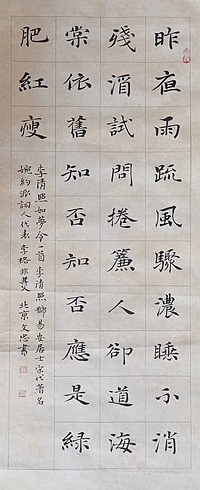 昨夜雨疏風驟濃睡不消
殘酒試問捲簾人卻道海
棠依舊知否知否應是綠
肥紅瘦
李清照如夢令一首 李清照號易安居士宋代著名
婉約派詞人代表 李格非其父 北京文忠書